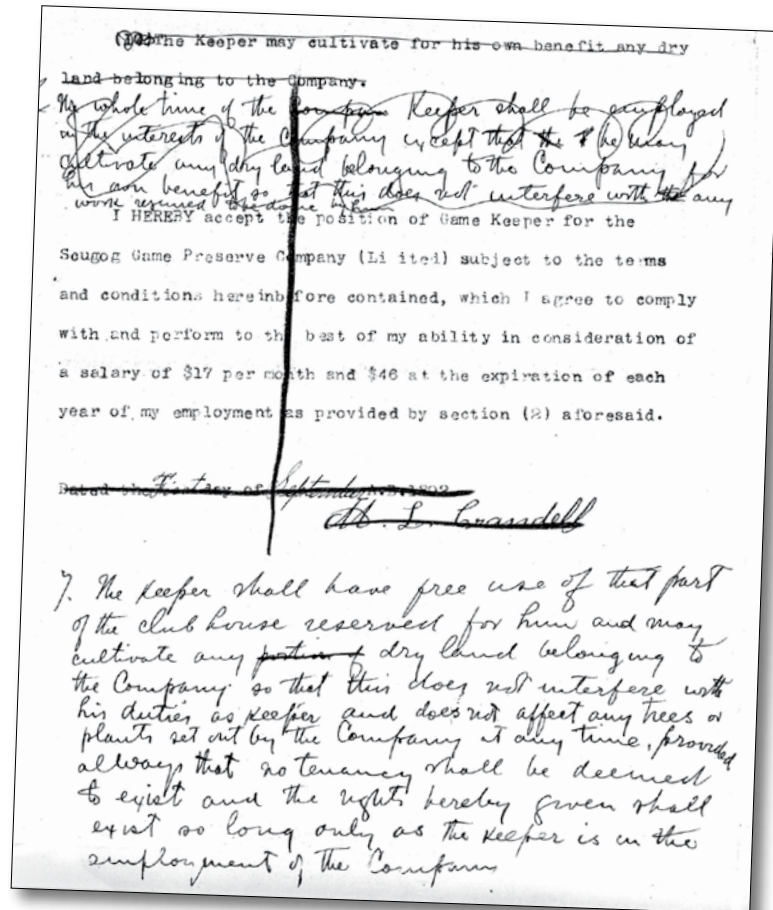 The Keeper may cultivate for his own benefit any dry
land belonging to the Company.
The whole time of the Company Keeper shall be employed
in the interests of the Company except that he may
cultivate any dry land belonging to the Company for
his own benefit so that this does not interfere with the any
work required to be done by him
I HEREBY accept the position of Game Keeper for the
Scugog Game Preserve Company (Li ited) subject to the terms
and conditions hereinbefore contained, which I agree to comply
with and perform to the best of my ability in consideration of
a salary of $17 per month and $46 at the expiration of each
year of my employment as provided by section (2) aforesaid.
Dated the First day of September A.D. 1892
H. L. Crandell
7. The Keeper shall have free use of that part
of the club house reserved for him and may
cultivate any portion of dry land belonging to
the Company so that this does not interfere with
his duties as Keeper and does not affect any trees or
plants set out by the Company at any time, provided
always that no tenancy shall be deemed
to exist and the rights hereby given shall
exist so long only as the Keeper is in the
employment of the Company